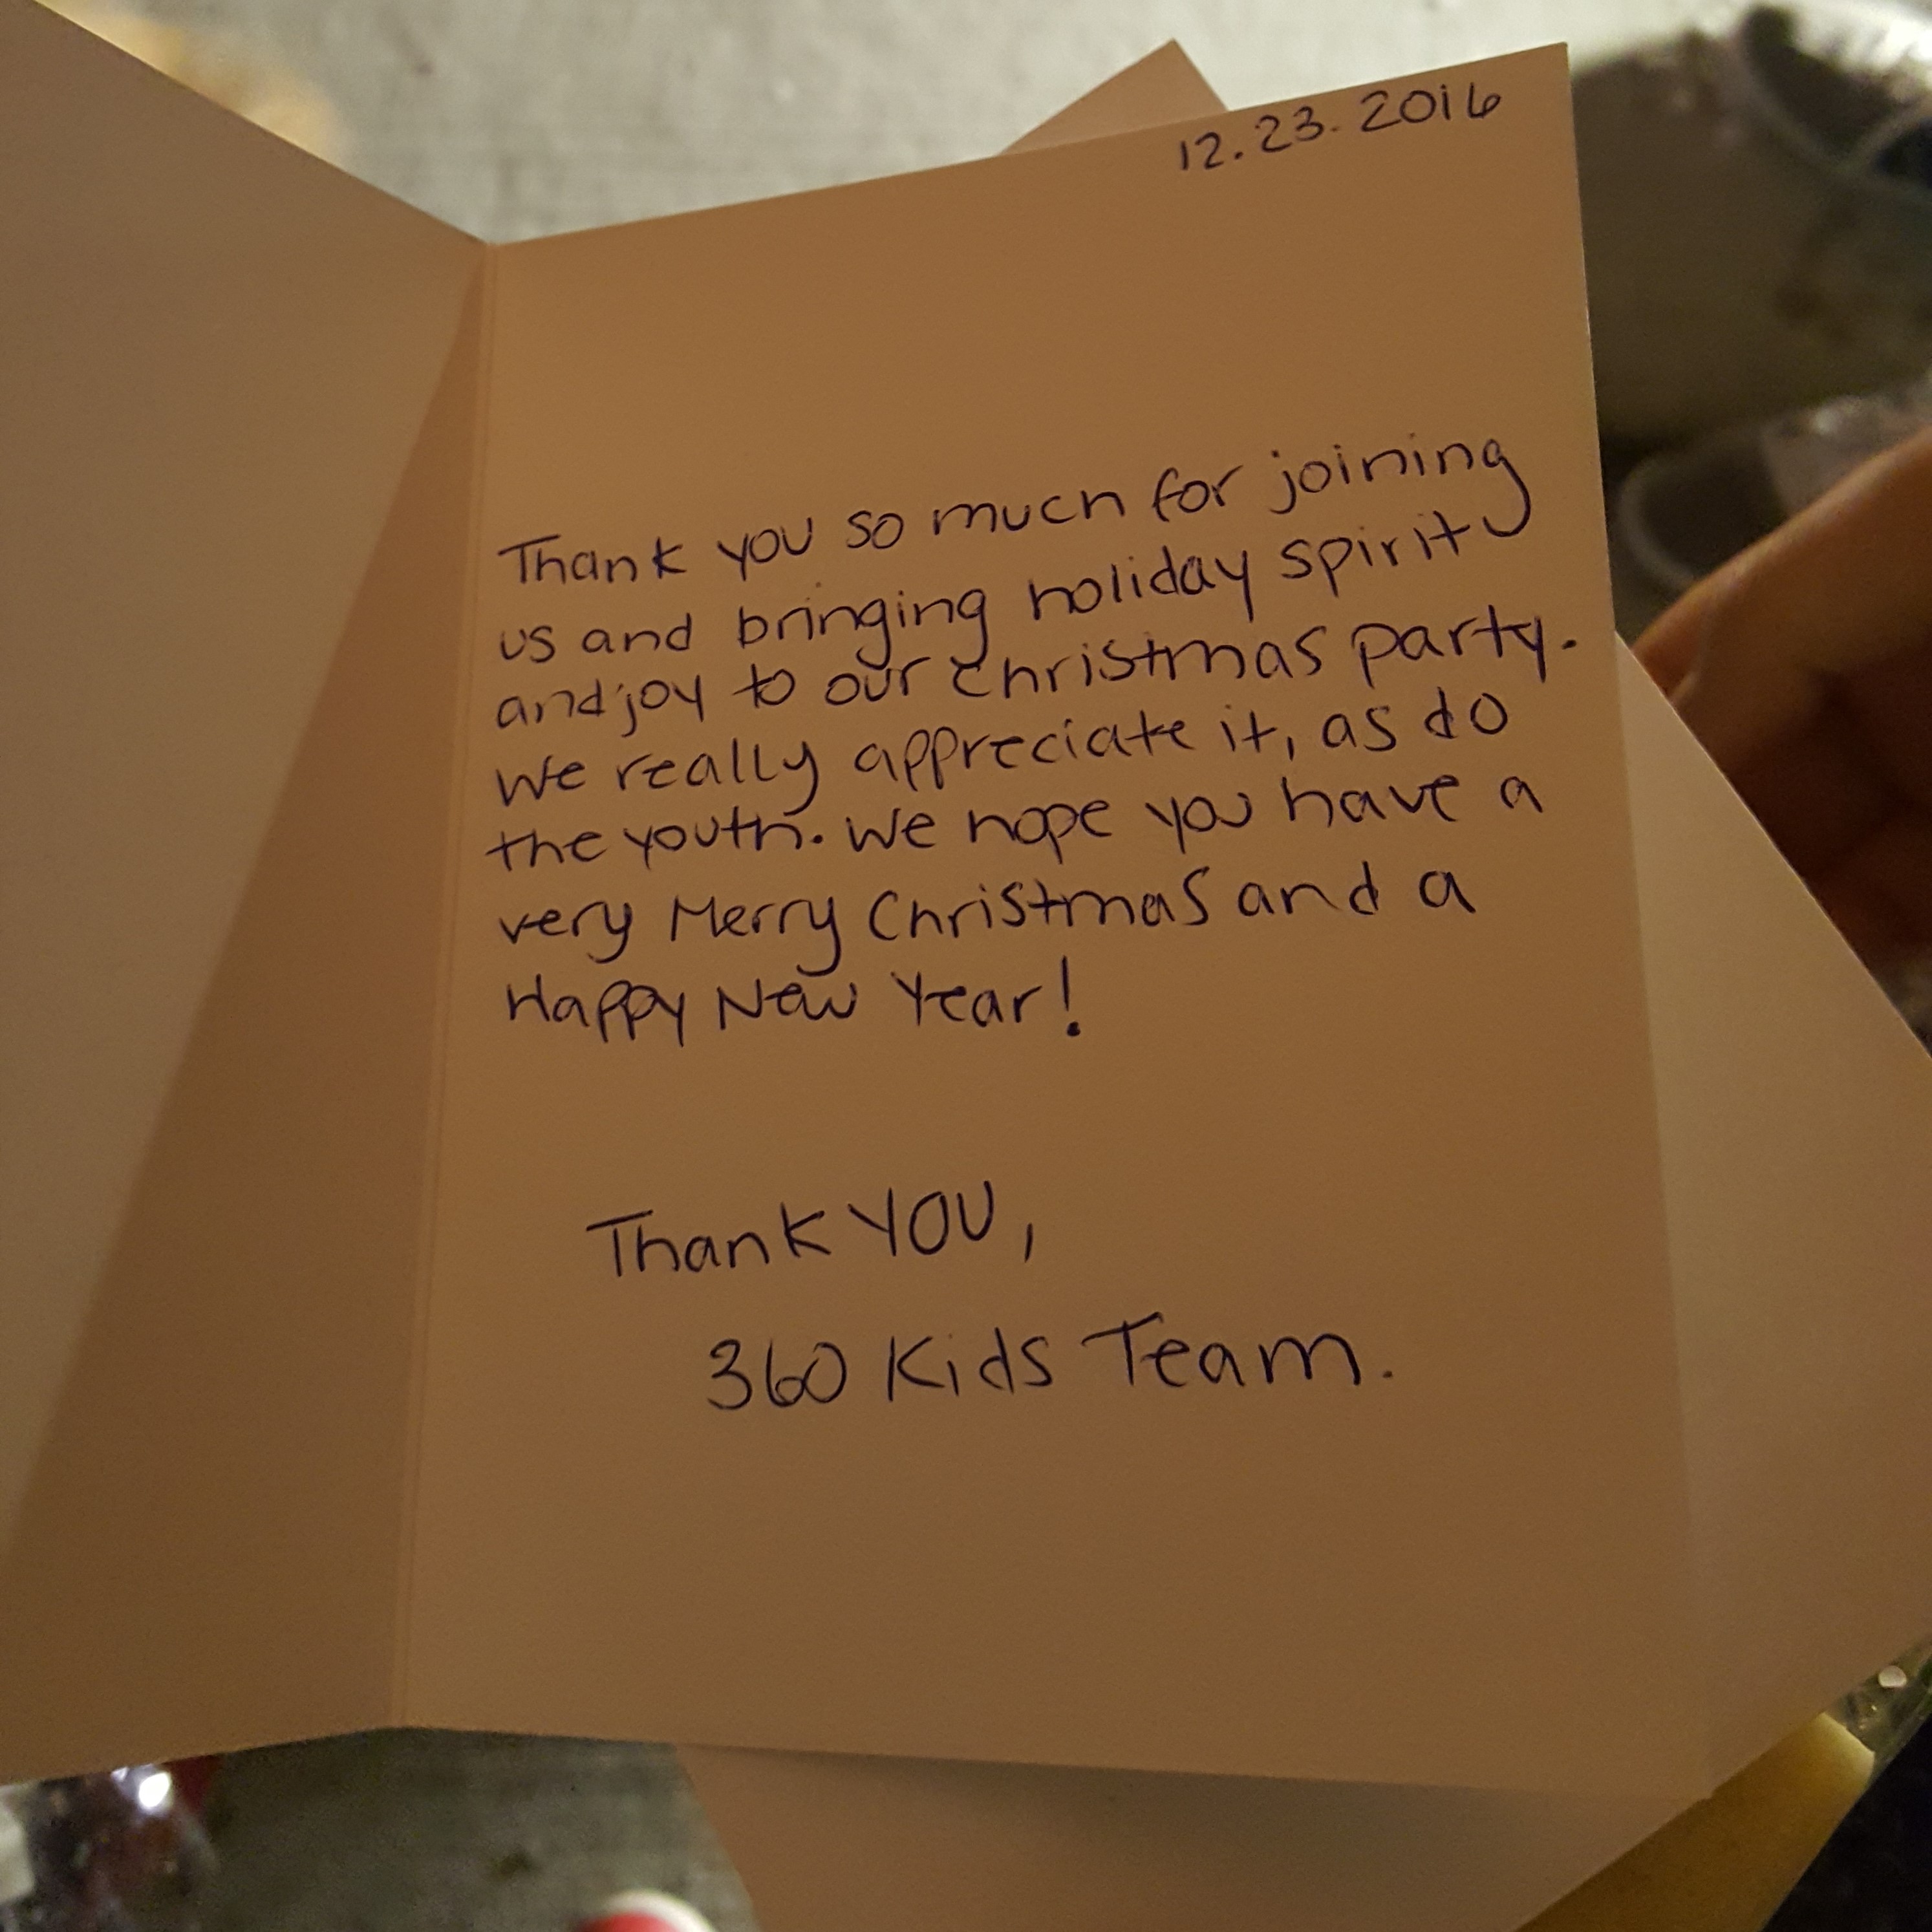 12.23.2016
Thank you so much for joining
us and bringing holiday spirit
and joy to our christmas party.
We really appreciate it, as do
the youth. We hope you have a
very Merry Christmas and a
Happy New Year!
Thank YOU,
360 Kids Team.